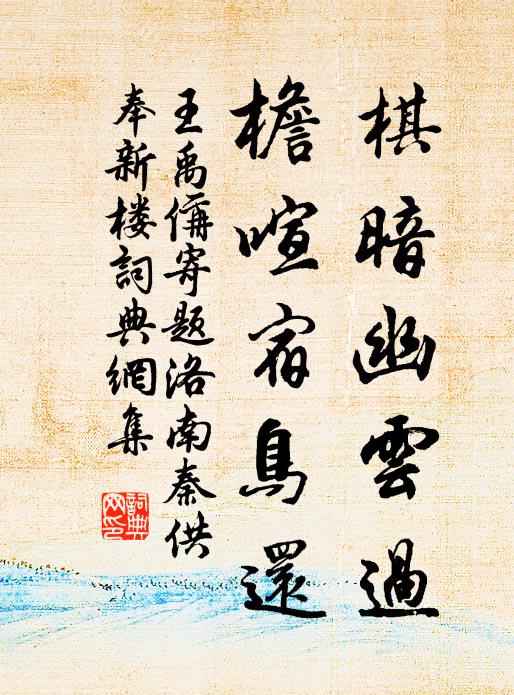 棋暗幽雲過
檐喧宿鳥還
王禹偁寄題洛南秦供
奉新楼詞典網集
詞典网印